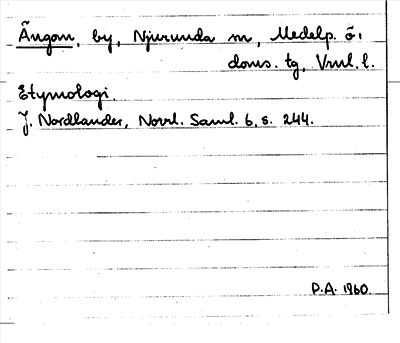 Ängom, by, Njurunda sn, Medelp. ö.
doms. tg, Vnl. l.
Etymologi.
J. Nordlander, Norrl. Saml. 6, s. 244.
P.A. 1960.